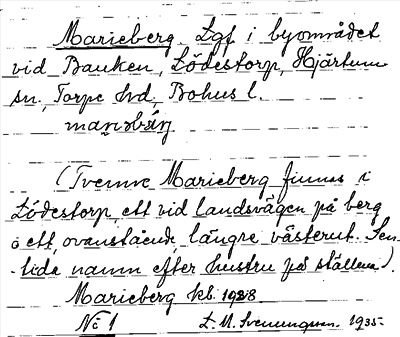 Marieberg Lgf i byområdet
vid Bauken, Lödestorp, Hjärtums
sn., Torpe hd, Bohus l.
(Tvenne Marieberg finnas i
Lödestorp, ett vid landsvägen på berg
o ett, ovanstående, längre västerut. Sen-
-tida namn efter hustru på ställena).
Marieberg kb. 1928
No 1 L. M. Svenungsson. 1935-